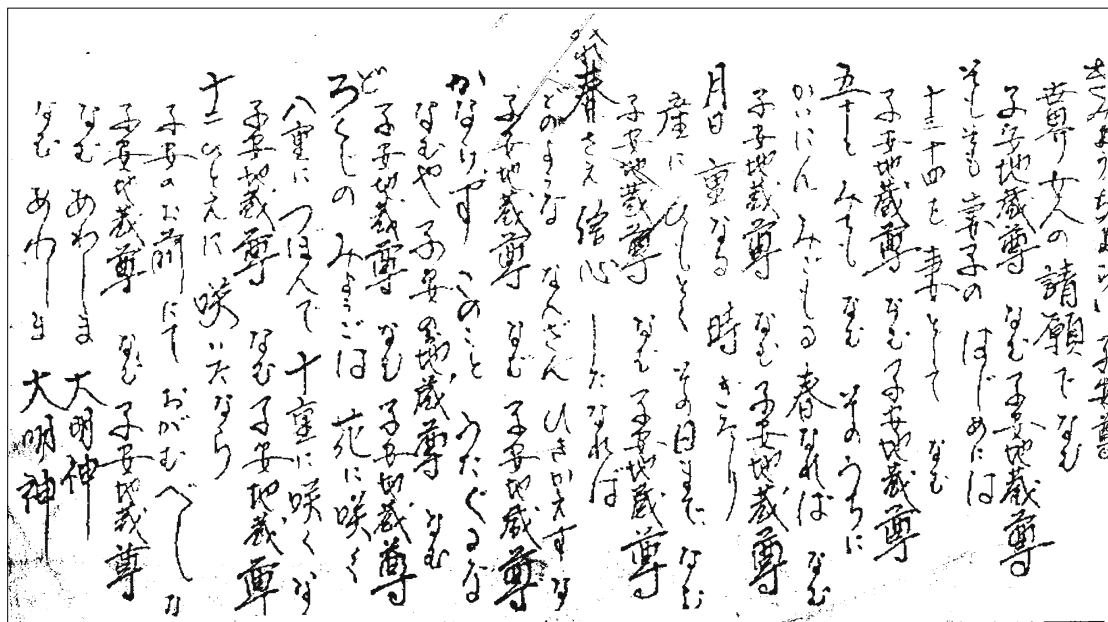 子安尊
女人の請願でなむ
子安地蔵尊 なむ子安地蔵尊
そもそも妻子の はじめには
十三十四を妻として なむ
子安地蔵尊 なむ子安地蔵尊
みても なむ そのうちに
かいにん みごもる 春なれば なむ
子安地蔵尊 なむ子安地蔵尊
月日 重なる 時 きたり
産に ひもとく その日まで なむ
子安地蔵尊 なむ子安地蔵尊
春さえ 信心 したなれば
どのような なんざん ひきかえすな
子安地蔵尊 なむ子安地蔵尊
かならず このこと うたぐるな
なむや 子安の地蔵尊 なむ
子安地蔵尊 なむ子安地蔵尊
ろくじの みょうごは 花に咲く
八重に つぼんで 十重に咲くな
子安地蔵尊 なむ子安地蔵尊
十二ひとえに 咲いたなら
子安のお前にて おがむべし な
子安地蔵尊 なむ子安地蔵尊
なむ あわしま 大明神
なむ あわしま 大明神